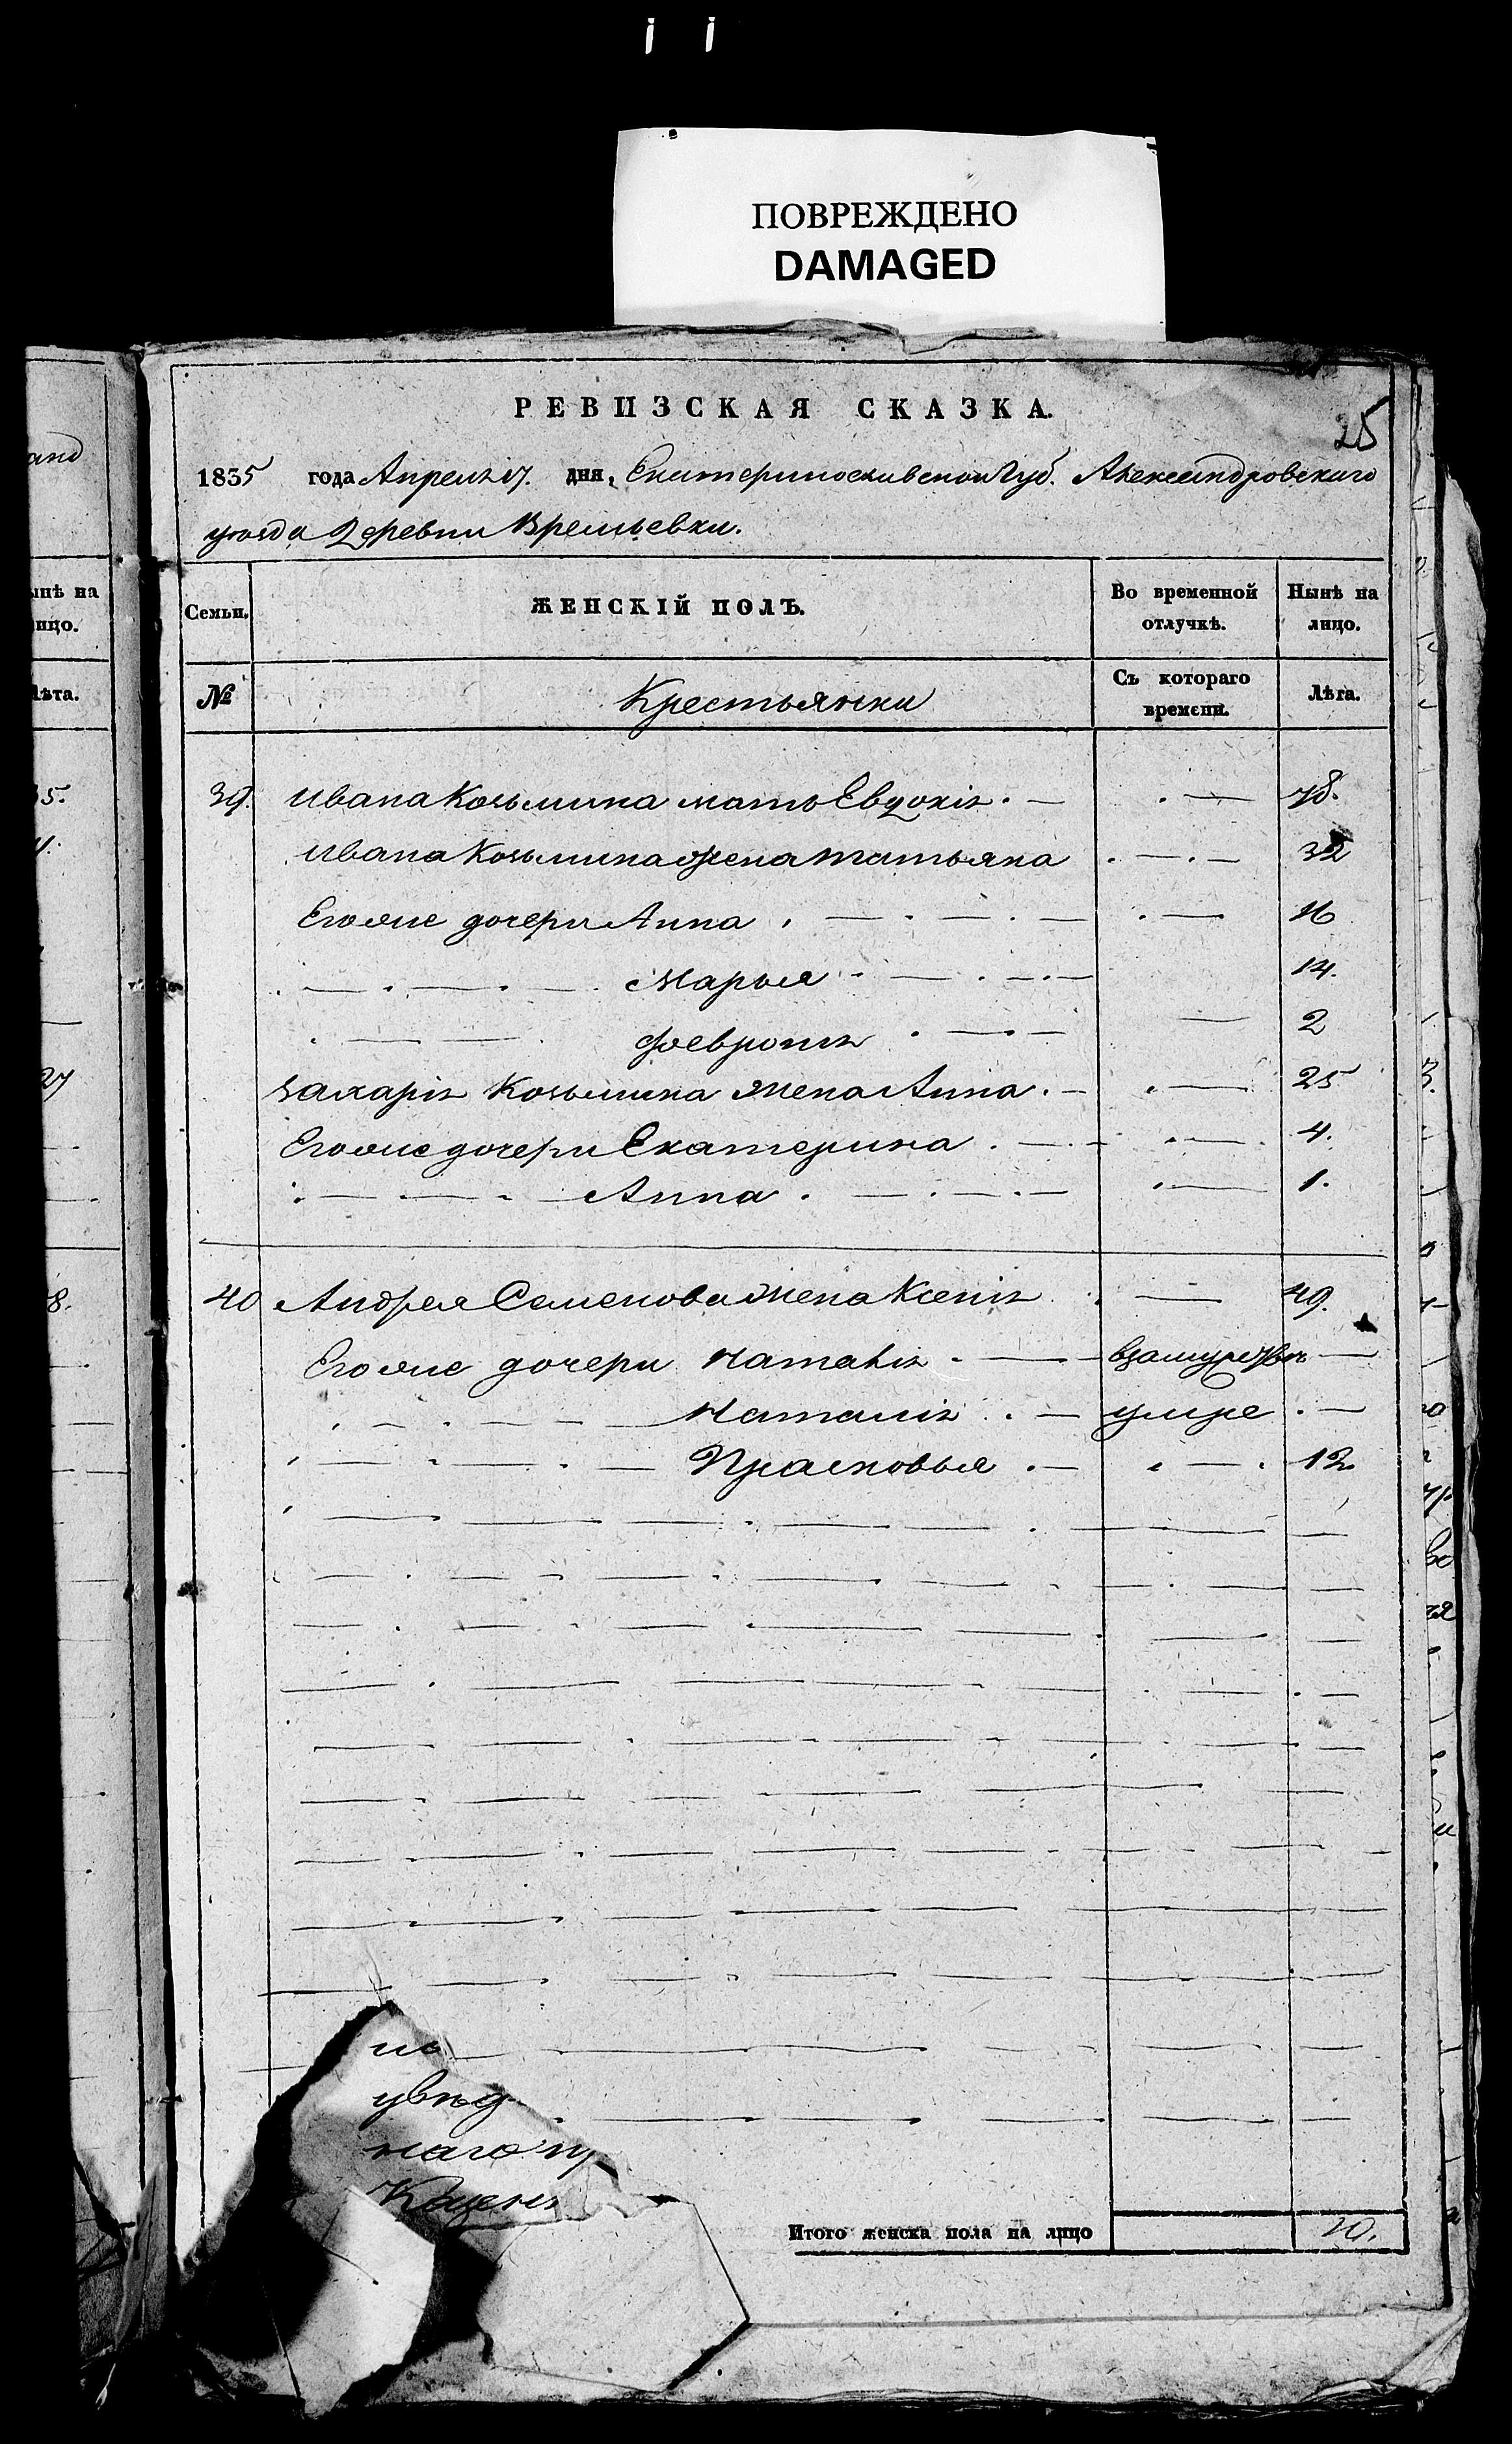 ПОВРЕЖДЕНО
DAMAGED
РЕВИЗСКАЯ СКАЗКА.
25
1835 года Апреля 17. дня, Екатеринославской Губ. Александровскаго
уезда Деревни Времьевки.
Семьи. ЖЕНСКІЙ ПОЛЪ. Во временной отлучкѣ. Нынѣ на лицо.
№ Крестьянки Съ котораго времени. Лѣта.
39. Ивана Козьмина мать Евдокія. 78.
Ивана Козьмина жена Татьяна 32
Его же дочери Анна 16
Марья 14.
Феврония 2
Захарія Козьмина жена Анна. 25
Его же дочери Екатерина 4.
Анна 1.
40 Андрея Семенова жена Ксенія 49.
Его же дочери Наталія взамужстве
Наталія умре
Прасковья 12
увед
наго пр
Итого женска пола на лицо 10.